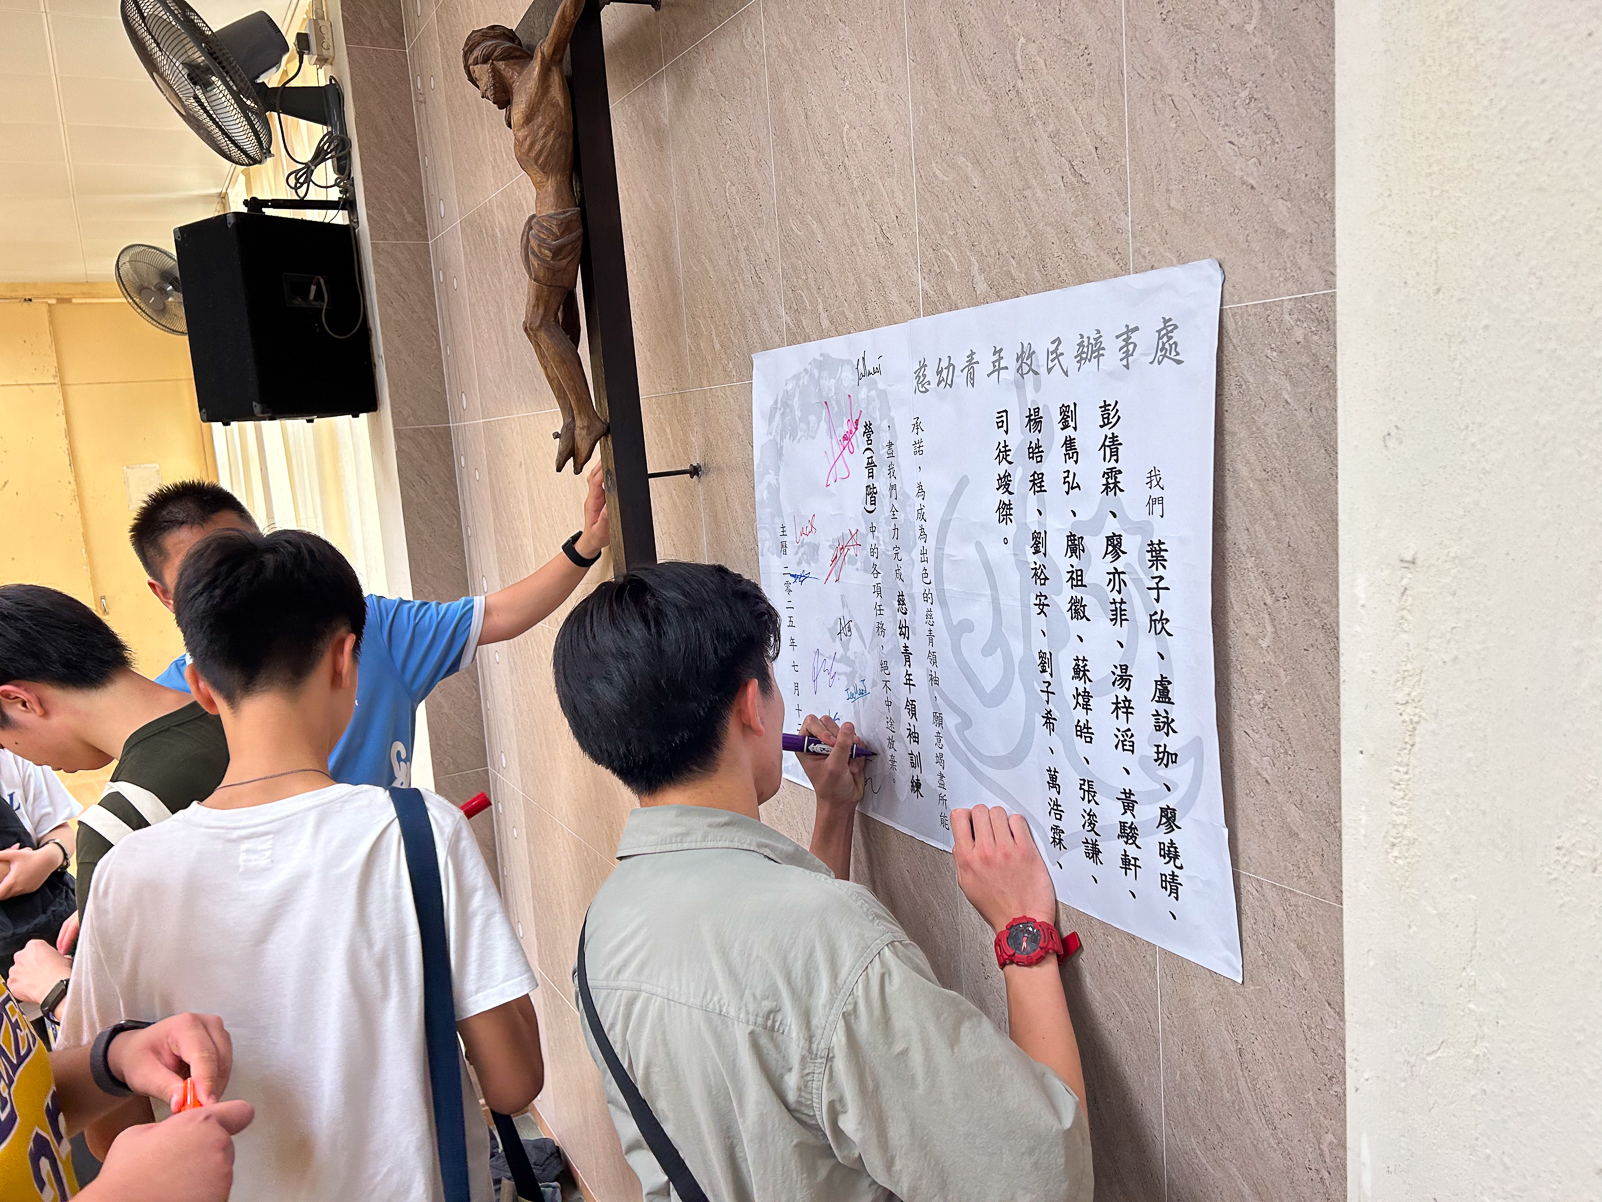 慈幼青年牧民辦事處
我們 葉子欣、盧詠珈、廖曉晴、
彭倩霖、廖亦菲、湯梓滔、黃駿軒、
劉雋弘、鄺祖徽、蘇煒皓、張浚謙、
楊皓程、劉裕安、劉子希、萬浩霖、
司徒竣傑。
承諾，為成為出色的慈青領袖，願意竭盡所能
，盡我們全力完成慈幼青年領袖訓練
營(晉階)中的各項任務，絕不中途放棄。
主曆二零二五年七月十
Angelo
Lucas